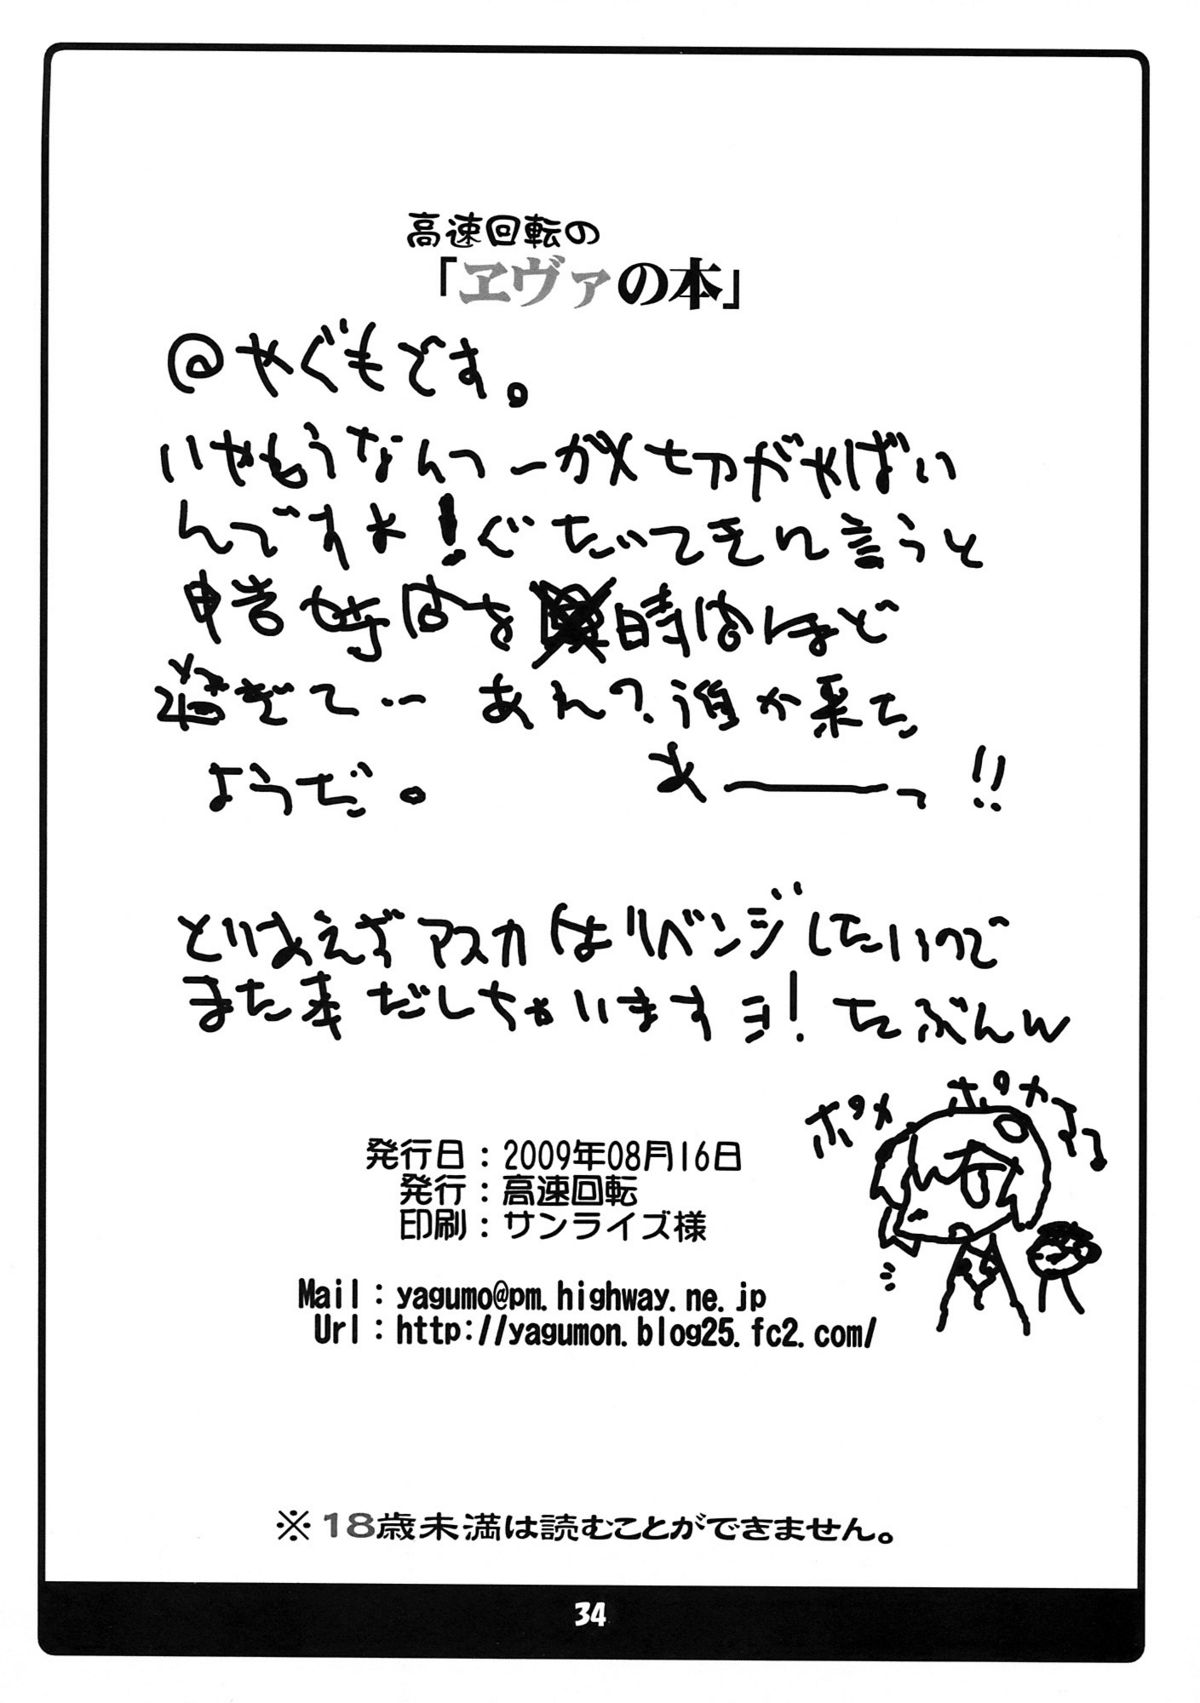 高速回転の
「ヱヴァの本」
@やぐもです。
いやもうなんつーか〆切がやばい
んですよ!ぐたいてきに言うと
申告時間を 時間ほど
過ぎて… あれ?誰か来た
ようだ。 あーーっ!!
とりあえずアスカはリベンジしたいので
また本だしちゃいますヨ!たぶんw
ポカ ポカ
発行日:2009年08月16日
発行:高速回転
印刷:サンライズ様
Mail:yagumo@pm.highway.ne.jp
Url:http://yagumon.blog25.fc2.com/
※18歳未満は読むことができません。
34